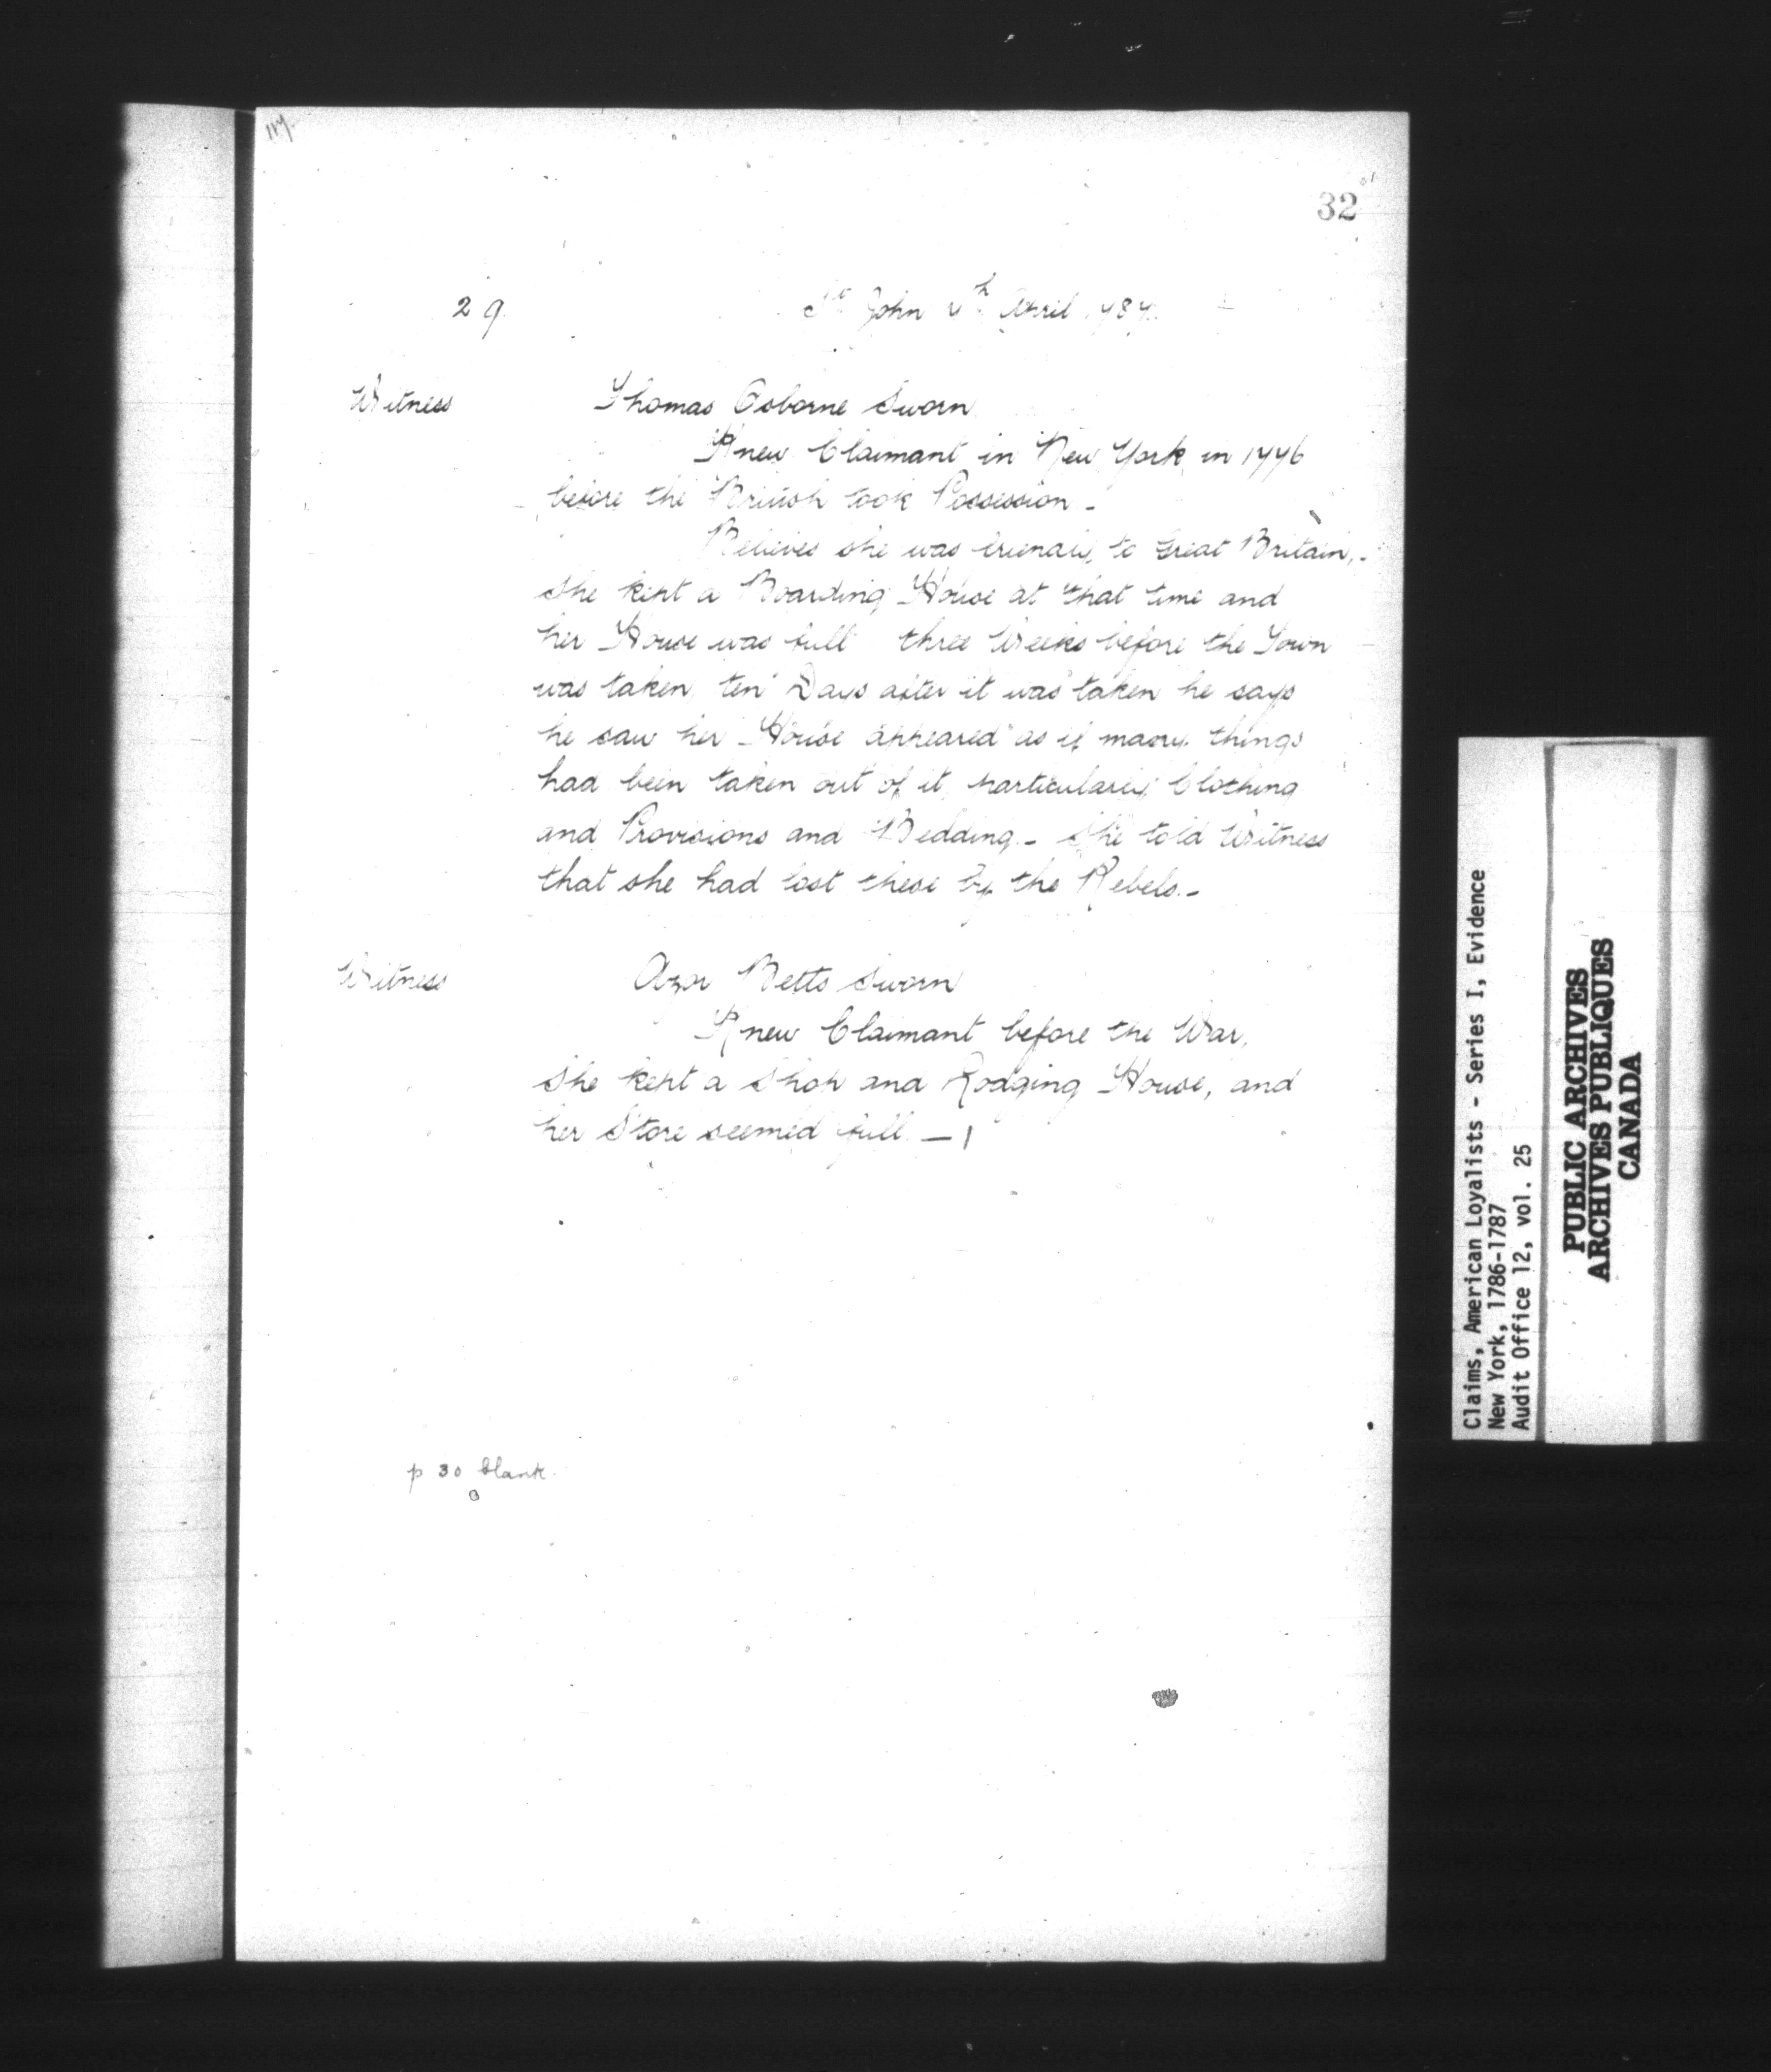 32
29
St John 4th April 1787.
Witness Thomas Osborne Sworn
Knew Claimant in New York in 1776
before the British took Possession -
Believes she was friendly to Great Britain, -
She kept a Boarding House at that time and
her House was full three Weeks before the Town
was taken, ten Days after it was taken he says
he saw her House appeared as if many things
had been taken out of it, particularly Clothing
and Provisions and Bedding. - She told Witness
that she had lost these by the Rebels. -
Witness Azor Betts Sworn
Knew Claimant before the War,
She kept a Shop and Lodging House, and
her Store seemed full. -
p 30 blank.
Claims, American Loyalists - Series I, Evidence
New York, 1786-1787
Audit Office 12, vol. 25
PUBLIC ARCHIVES
ARCHIVES PUBLIQUES
CANADA